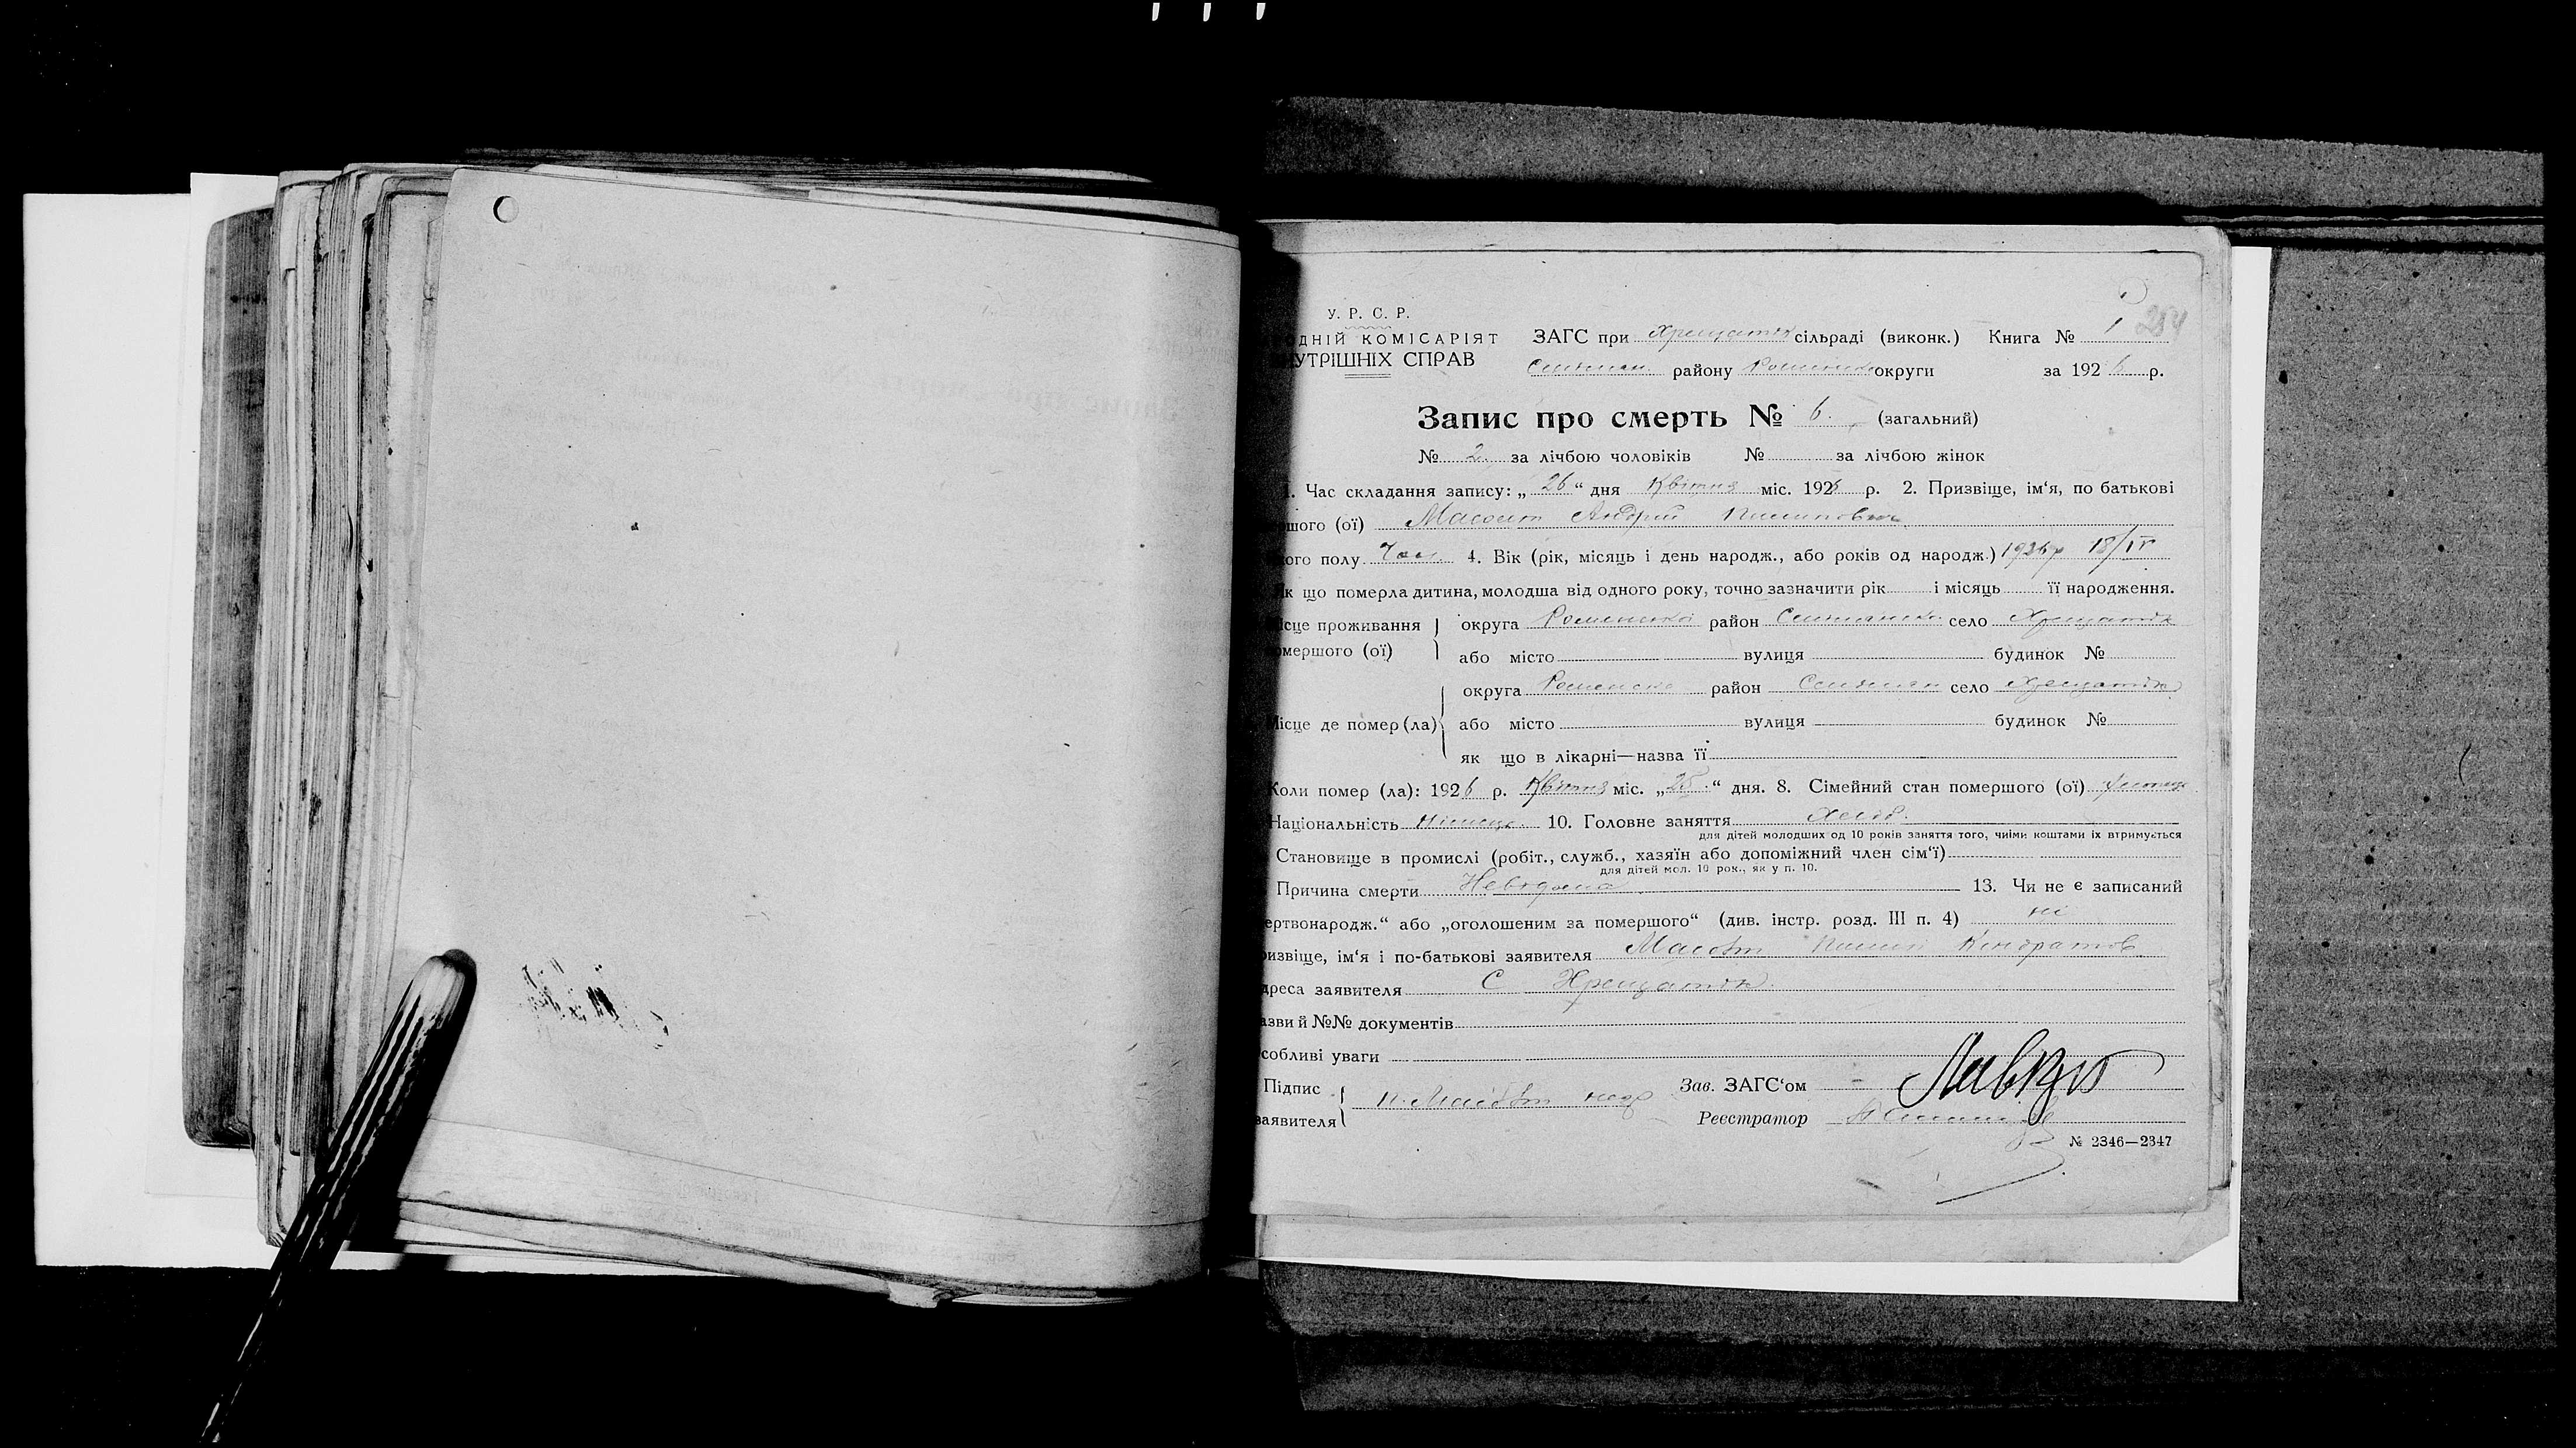 У. Р. С. Р.
ОДНІЙ КОМІСАРІЯТ ЗАГС при Хрещатик сільраді (виконк.) Книга № 1 254
УТРІШНІХ СПРАВ району Роменськ округи за 1926 р.
Запис про смерть № 6. (загальний)
№ 2. за лічбою чоловіків № за лічбою жінок
1. Час складання запису: „26“ дня Квітня міс. 1926 р. 2. Призвіще, ім‘я, по батькові
шого (ої) Андрій Пилипович
кого полу Чол. 4. Вік (рік, місяць і день народж., або років од народж.) 1926 р 18/IV
Як що померла дитина, молодша від одного року, точно зазначити рік і місяць її народження.
ісце проживання округа Роменської район село Хрещатик
омершого (ої) або місто вулиця будинок №
округа Роменсько район село Хрещатик
Місце де помер (ла) або місто вулиця будинок №
як що в лікарні—назва її
Коли помер (ла): 1926 р. Квітня міс. „25.“ дня. 8. Сімейний стан помершого (ої)
Національність 10. Головне заняття Хліб.
для дітей молодших од 10 років заняття того, чиїми коштами їх втримується
Становище в промислі (робіт., служб., хазяїн або допоміжний член сім‘ї)
для дітей мол. 10 рок., як у п. 10.
Причина смерти Невідома 13. Чи не є записаний
ертвонародж.“ або „оголошеним за помершого“ (див. інстр. розд. III п. 4) ні
извіще, ім‘я і по-батькові заявителя Пилип Кіндратов
дреса заявителя С Хрещатик
азви й №№ документів
собливі уваги
Підпис Зав. ЗАГС‘ом
заявителя
Реєстратор
№ 2346—2347